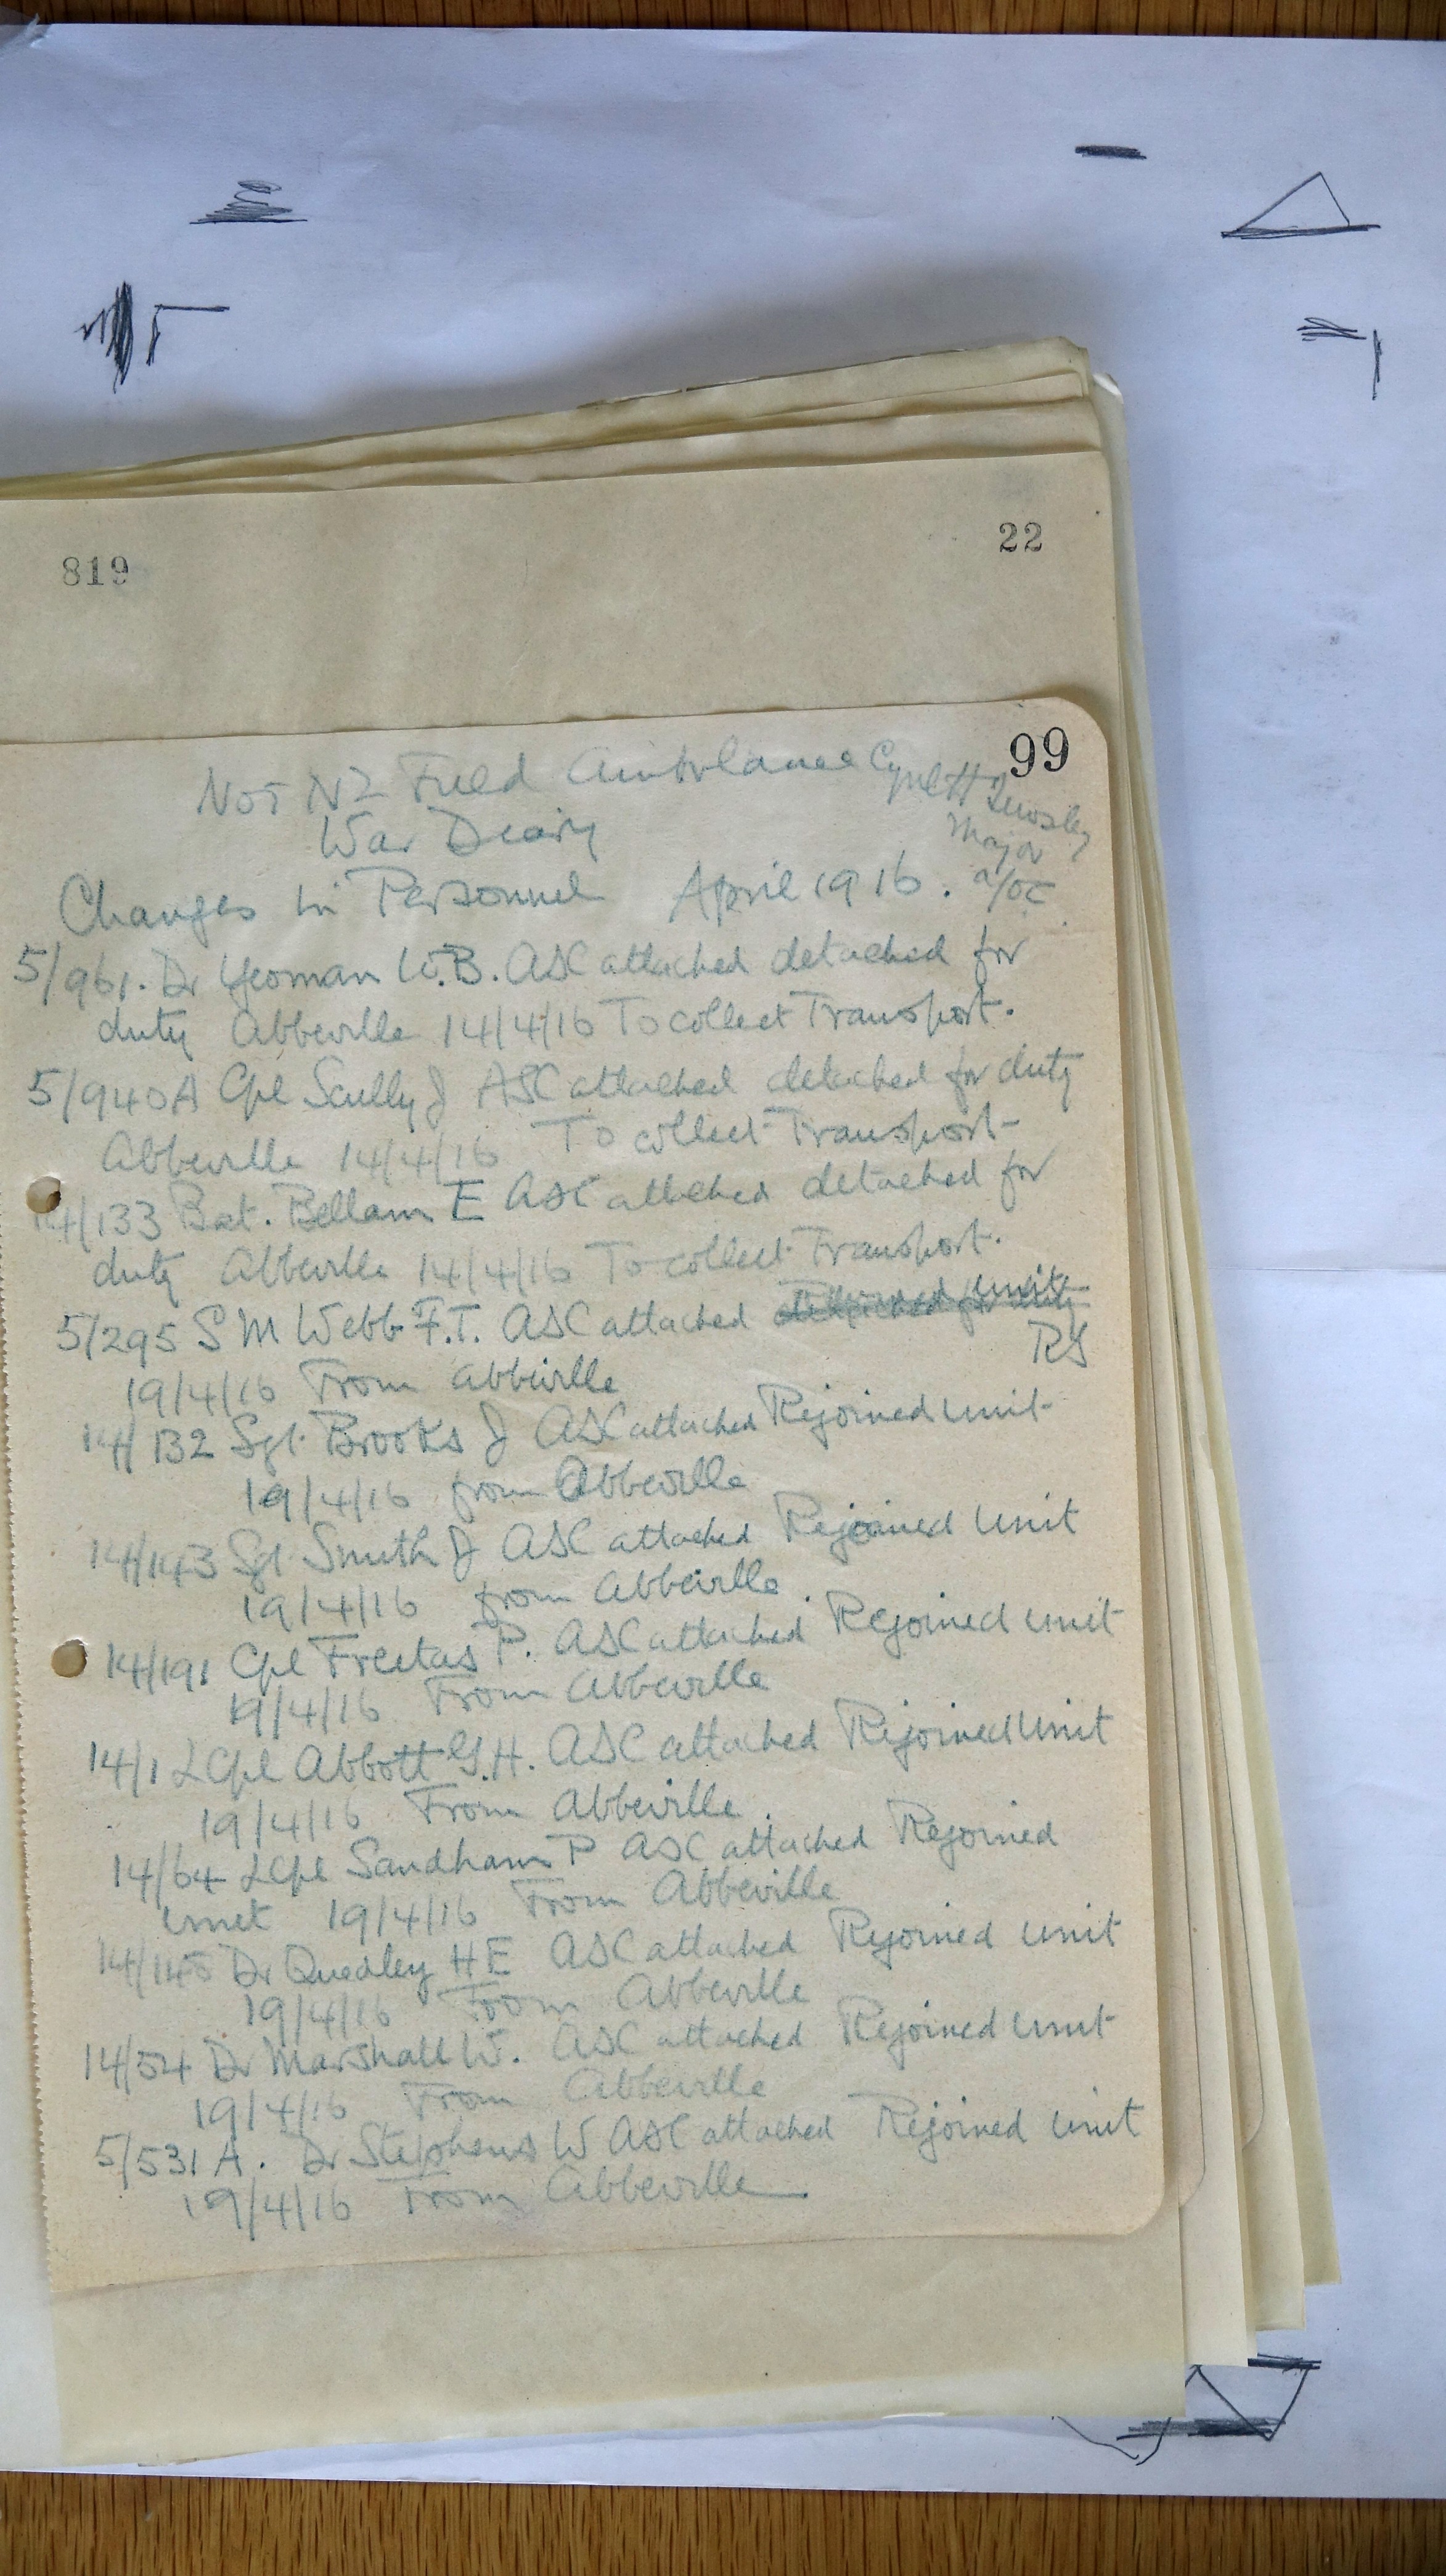 819
22
99
No 1 NZ Field Ambulance
War Diary
Cyril H
Major
a/OC
Changes in Personnel April 1916.
5/961. Dr Yeoman W.B. ASC attached detached for
duty Abbeville 14/4/16 To collect Transport.
5/940A Cpl Scully J ASC attached detached for duty
Abbeville 14/4/16 To collect Transport
14/133 Bat. Bellam E ASC attached detached for
duty Abbeville 14/4/16 To collect Transport.
5/295 S M Webb F.T. ASC attached
19/4/16 From Abbeville
14/132 Sgt Brooks J ASC attached Rejoined unit
19/4/16 from Abbeville
14/143 Sgt Smith J ASC attached Rejoined unit
19/4/16 from Abbeville.
14/191 Cpl Freitas P. ASC attached Rejoined unit
19/4/16 From Abbeville
14/1 LCpl Abbott G.H. ASC attached Rejoined unit
19/4/16 From Abbeville.
14/64 LCpl Sandham P ASC attached Rejoined
unit 19/4/16 From Abbeville
Dr Quedley H E ASC attached Rejoined unit
19/4/16 From Abbeville
14/54 Dr Marshall W. ASC attached Rejoined unit
19/4/16 From Abbeville
5/531A. Dr Stephens W ASC attached Rejoined unit
19/4/16 From Abbeville